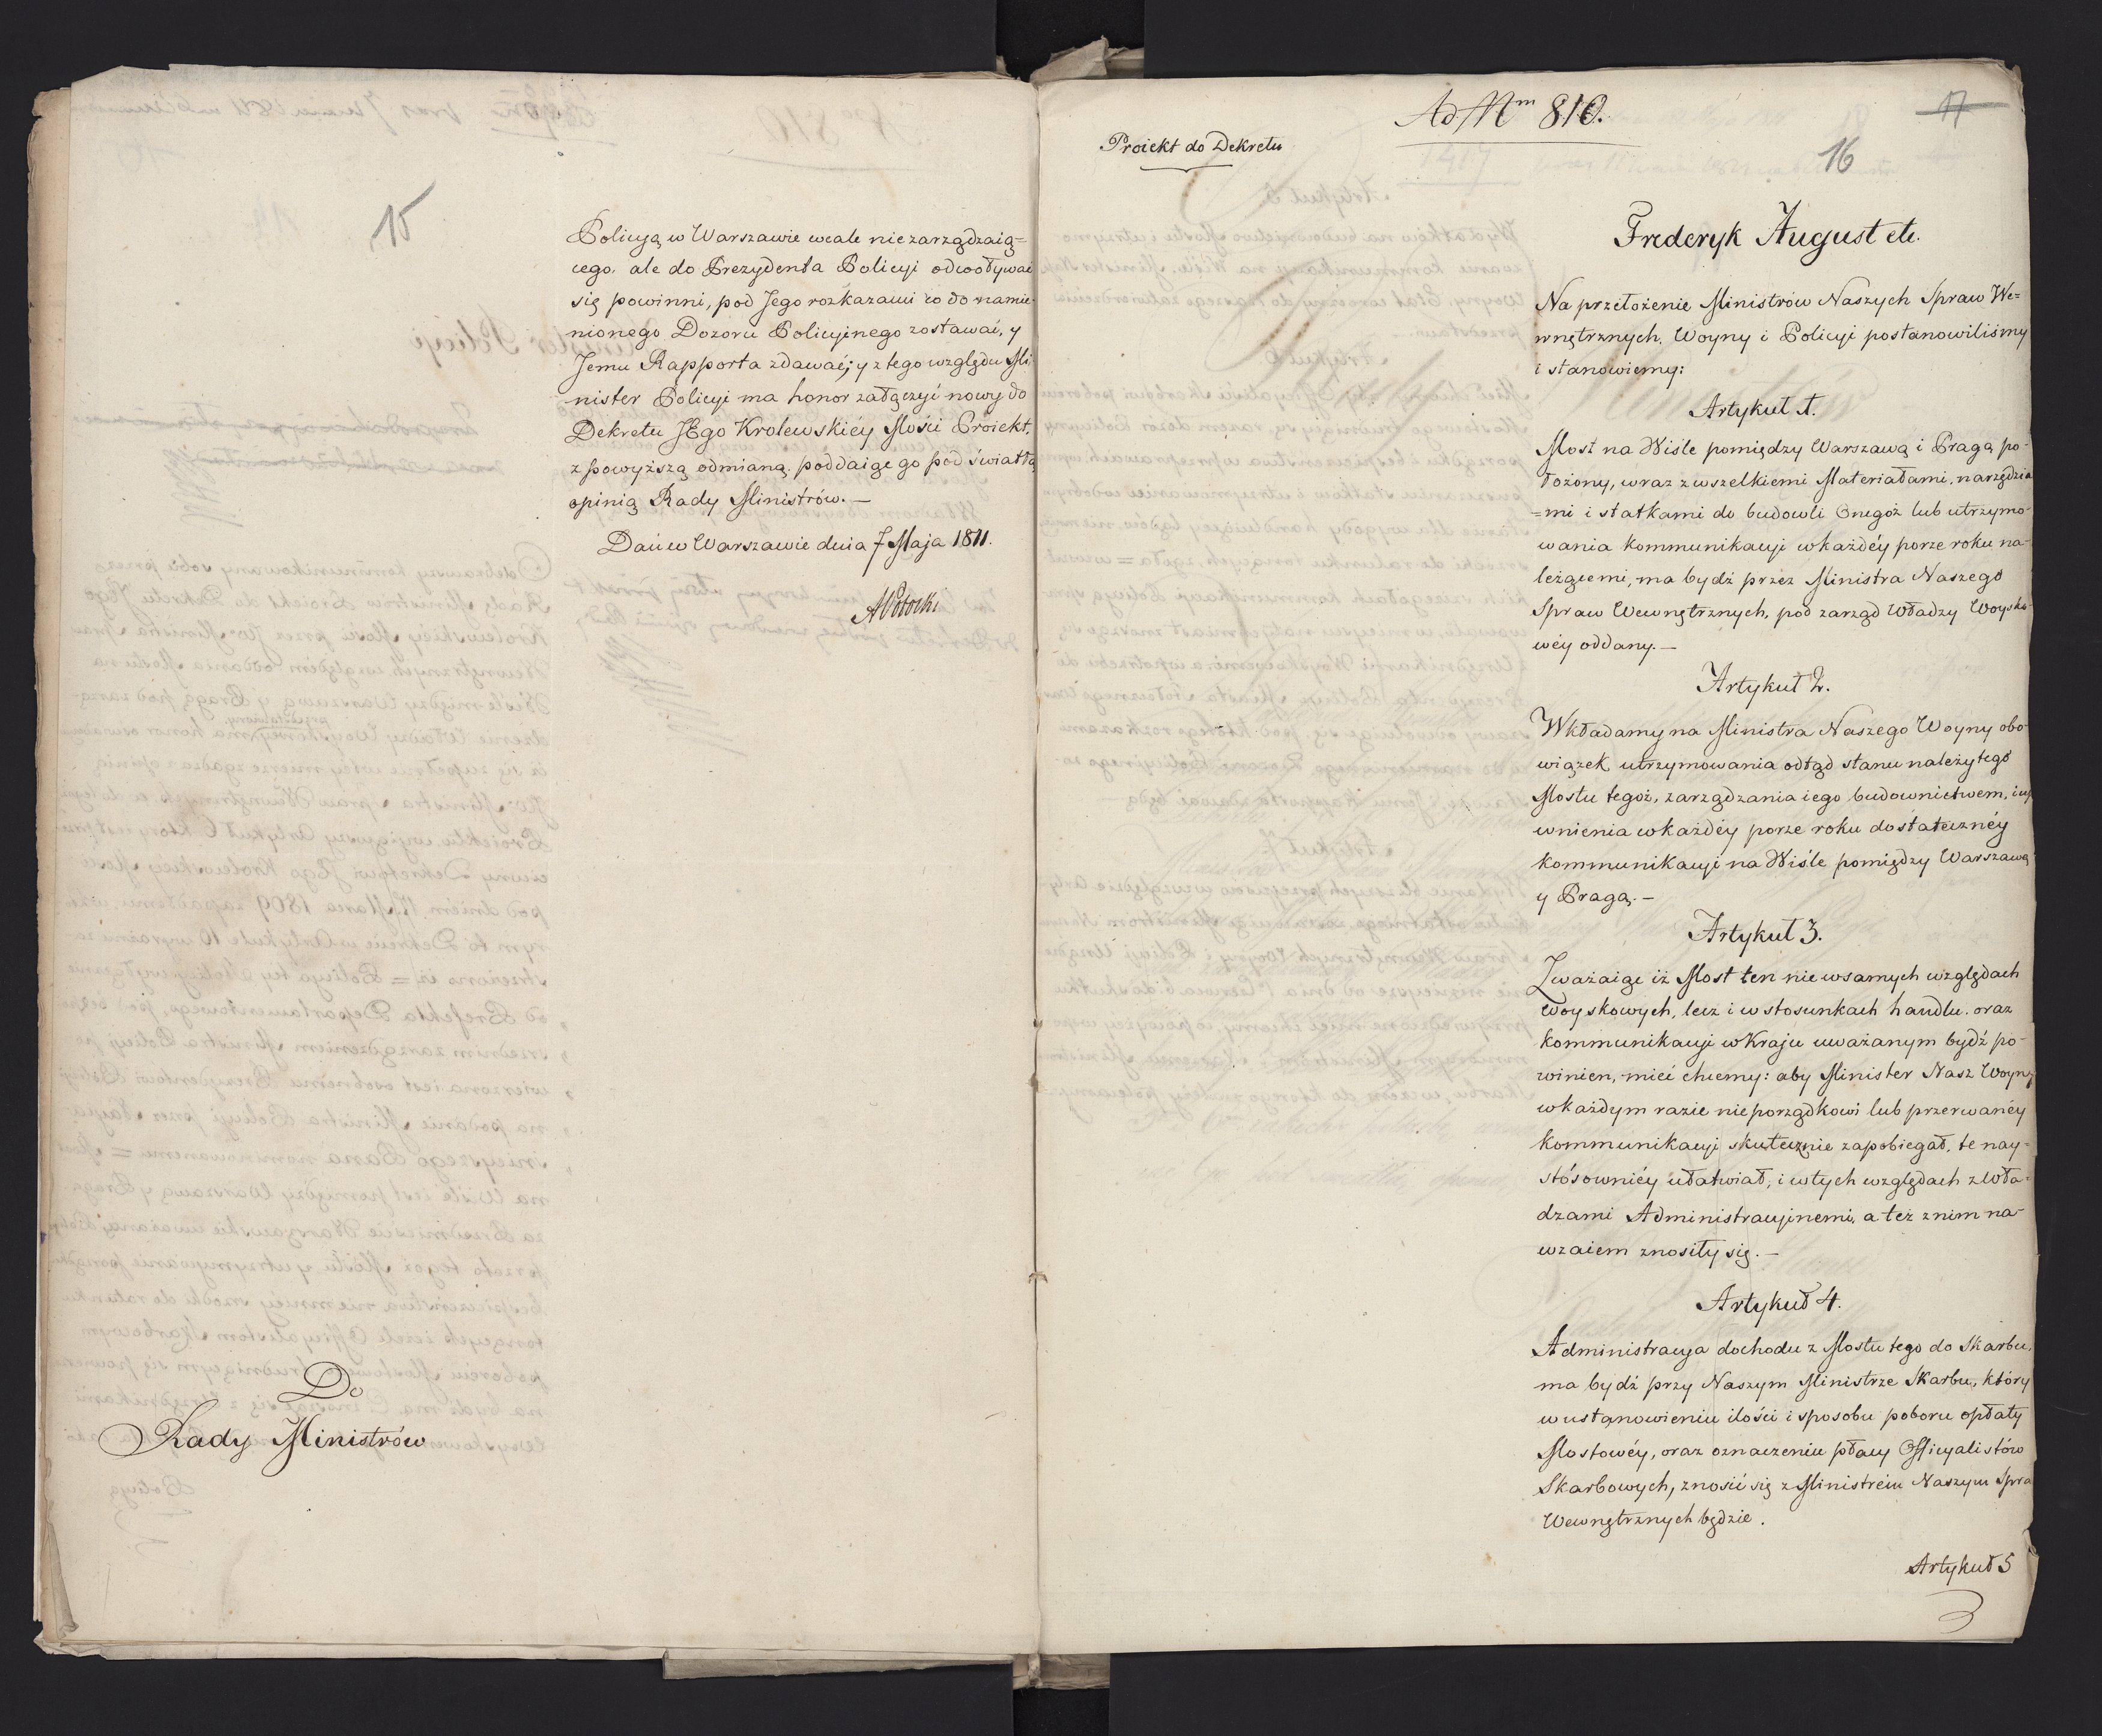 15
Policyą w Warszawie wcale niezarządzaią=
cego, ale do Prezydenta Policyi odwoływać
się powinni, pod Jego rozkazami co do namie-
nionego Dozoru Policyinego zostawać, y
Jemu Rapporta zdawać; y z tego względu Mi
nister Policyi ma honor załączyć nowy do
Dekretu JEgo Krolewskiéy Mości Proiekt,
z powyższą odmianą, poddaiąc go pod światłą
opinią Rady Ministrów. —
Dań w Warszawie dnia 7 Maja 1811.
APotocki
Do
Rady Ministrów
Ad Nm 810.
17
16
Proiekt do Dekretu
Frederyk August etc.
Na przełożenie Ministrów Naszych Spraw We=
wnętrznych, Woyny i Policyi postanowiliśmy
i stanowiemy:
Artykuł 1.
Most na Wiśle pomiędzy Warszawą i Pragą po-
łożony, wraz z wszelkiemi Materiałami, narzędzia
=mi i statkami do budowli Onegoż lub utrzymo-
wania kommunikacyi w każdéy porze roku na-
leżącemi, ma bydź przez Ministra Naszego
Spraw Wewnętrznych, pod zarząd Władzy Woysko-
wéy oddany. —
Artykuł 2.
Wkładamy na Ministra Naszego Woyny obo-
wiązek utrzymowania odtąd stanu należytego
Mostu tegoż, zarządzania iego budownictwem, i up
ewnienia w każdéy porze roku dostatecznéy
kommunikacyi na Wiśle pomiędzy Warszawą
y Pragą. —
Artykuł 3.
Zważaiąc iż Most ten nie w samych względach
Woyskowych, lecz i w stosunkach handlu, oraz
kommunikacyi w Kraju uważanym bydź po-
winien, mieć chcemy: aby Minister Nasz Woyny
w każdym razie nieporządkowi lub przerwanéy
kommunikacyi skutecznie zapobiegał, te nay-
stósowniéy ułatwiał, i w tych względach z Wła-
dzami Administracyinemi, a też z nim na-
wzaiem znosiły się. —
Artykuł 4.
Administracya dochodu z Mostu tego do Skarbu,
ma bydź przy Naszym Ministrze Skarbu, który
w ustanowieniu ilości i sposobu poboru opłaty
Mostowéy, oraz oznaczeniu płacy Officyalistów
Skarbowych, znosić się z Ministrem Naszym Spra
Wewnętrznych będzie.
Artykuł 5